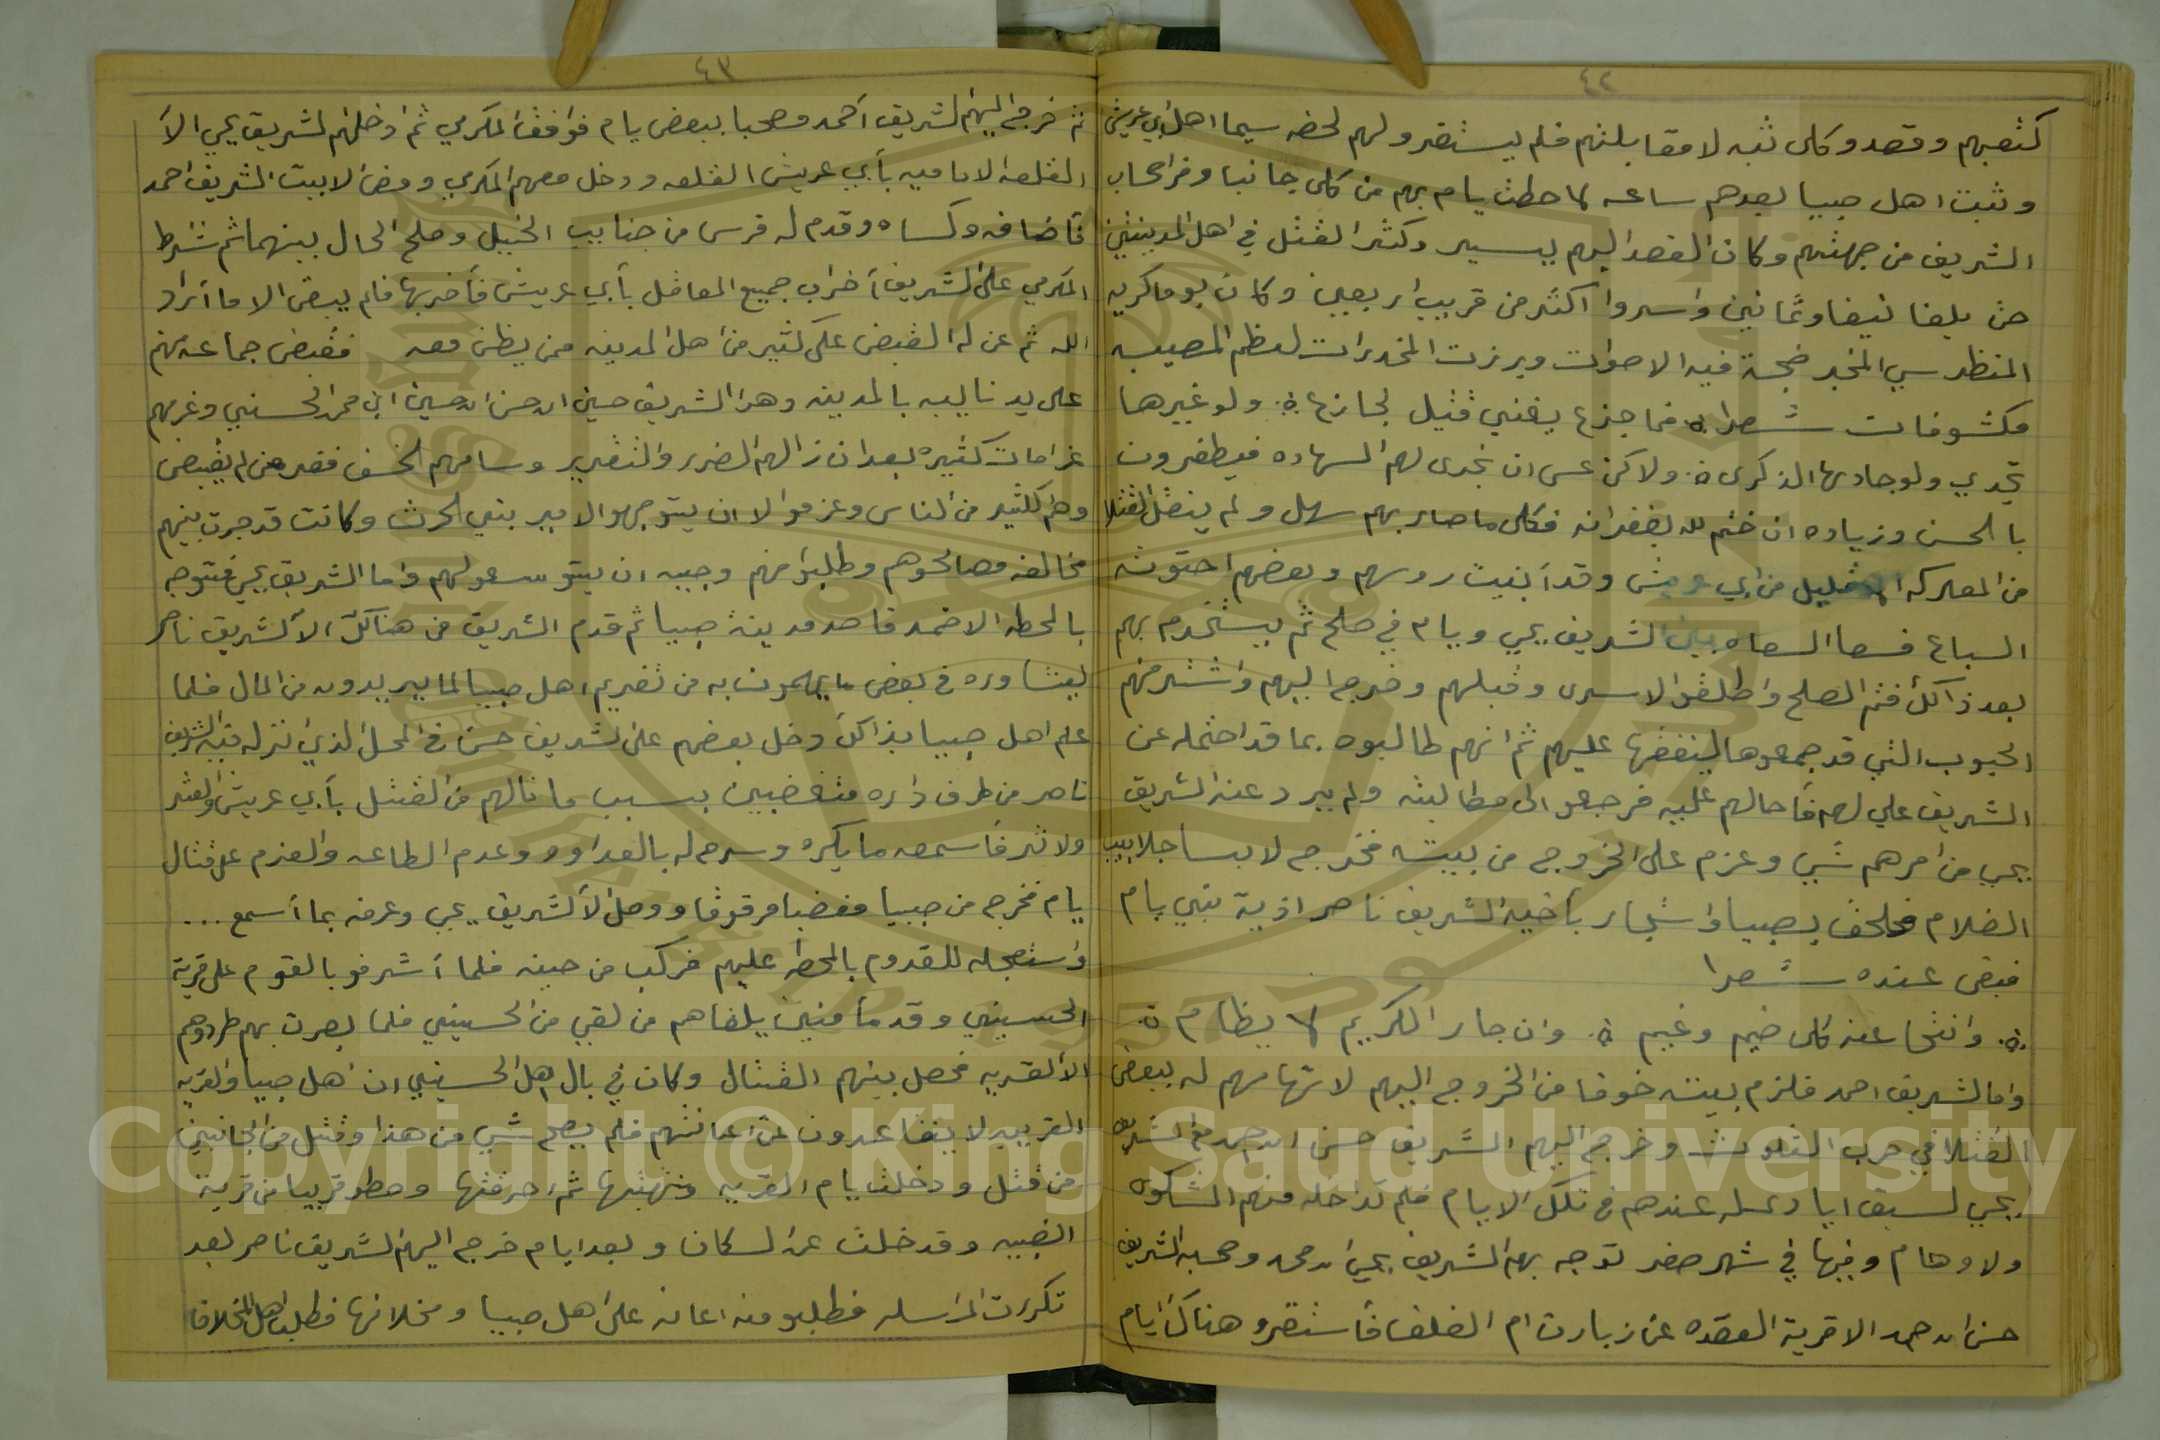 ٤٢
كثعبهم وقصد وكلى ثبه لا مقابلتهم فلم يستقر ولهم لحضه سيما اهل ابي عريش
وثبت اهل صبيا بعدهم ساعه لما حطت يام بهم من كلى جانبا وفر اصحاب
الشريف من جهتهم وكان القصد اليهم يسير وكثر القتل في اهل المدينتين
حتى بلغا نيفا وثمانين واسروا اكثر من قريب اربعين وكان يوما كريه
المنظر سيي المخبر ضجة فيه الاصوات وبرزت المخدرات لعظم المصيبه
مكشوفات شعرا فما جزع يغني قتيل لجازعا ولو غيرها
تجدي ولو جادها الذكرى ولاكن عسى ان تجدى لهم السهاده فيظفرون
بالحسن وزياده ان ختم لله بغفرانه فكلى ما صار بهم سهل ولم ينقل القتلا
من المعركه الا قليل من ابي عريش وقد أبنيت روسهم وبعضهم احتوته
السباع فسعا السعاه بين الشريف يحي ويام في صلح ثم يستخدم بهم
بعد ذالك فتم الصلح واطلقوا الاسرى وقبلهم وخرج اليهم واشتر منهم
الحبوب التي قد جمعوها لينفقها عليهم ثم انهم طالبوه بما قد احتمله عن
الشريف علي لهم فأحالهم عليه فرجعو الى مطالبته ولم يرد عنه الشريق
يحي من امرهم شي وعزم على الخروج من بيته فخرج لابسا جلابيب
الضلام فلحق بصبيا واشجار بأخيه الشريف ناصر اذية بني يام
فبقى عنده شعرا
وانتحا عنه كلى ضيم وغيم وان جار الكريم لا يظام
واما الشريف احمد فلزم بيته خوفا من الخروج اليهم لاتهامهم له ببعض
القتلا في حرب التلوث وخرج اليهم الشريف حسن ابن حمد مع الشريف
يحي لسبق ايادي له عندهم في تلك الايام فلم تداخله منهم الشكوى
ولاوهام وفيها في شهر صفر توجه بهم الشريف يحي ابن محمد وصحبه الشريف
حسن ابن حمد الا قرية العقده عن زيارت ام الغلف فأستقرو هناك ايام
٤٣
ثم خرج اليهم الشريق أحمد مصحبا ببعض يام فوافقا المكرمي ثم ادخلهم الشريق يحي الأ
القلعه الاماميه بأبي عريش القلعه ودخل معهم المكرمي ومضا الا بيت الشريف احمد
فأضافه وكساه وقدم له فرس من جنايب الخيل وصلح الحال بينهما ثم شرط
المكرمي على الشريف أخراب جميع المعاقل بأبي عريش فأخربها فلم يبقى الا ما أراد
الله ثم عن له القبض على كثير من اهل المدينه ممن يظن معه فقبض جماعة منهم
على يد نايبه بالمدينه وهو الشريف حسين ابن حسن ابن حسين ابن محمد الحسني وغرمهم
غرامات كثيره بعد ان نالهم الضرر والتغرير وسامهم الخسف ففر من لم يقبض
وهم كثير من الناس وعزموا لا ان يتوجهوا لا مير بني الحرث وكانت قد جرت بينهم
مخالفه فصالحوهم وطلبوا منهم وجبيه ان يتوسعو لهم واما الشريف يحي فتوجه
بالمحطه الاضمد قاصد مدينة صبيا ثم قدم الشريق من هناك الأ الشريق ناصر
ليشاوره في بعض ما يهمون به من تغريم اهل صبيا لما يريدون من المال فلما
علم اهل صبيا بذالك دخل بعضهم على الشريف حسن في المحل الذي نزله فيه الشريف
ناصر من طرف داره متغضبين بسبب ما نالهم من القتل بأبي عريش والعثر
ولاثر فأسمعه ما يكره وسرح له بالعداوه وعدم الطاعه والعزم على قتال
يام فخرج من صبيا مغضبا مرقوفا ووصل الأ الشريف يحي وعرفه بما أسمع ...
واستعجله للقدوم بالمحطه عليهم فركب من حينه فلما أشرفو بالقوم على قرية
الحسيني وقد مأمنين يلقاهم من لقي من الحسيني فلما بصرت بهم طردوهم
الأ القريه فحصل بينهم القتال وكان في بال اهل الحسيني ان اهل صبيا والقريه
القريبه لا يتقاعدون عن اعانتهم فلم يصلح شي من هذا وقتل من الجانبين
من قتل ودخلت يام القريه ونهبتها ثم احرقتها وحطو قريبا من قرية
الضبيه وقد خلت عن السكان وبعد ايام خرج اليهم الشريف ناصر بعد
تكررت المراسله فطلبو منه اعانه على اهل صبيا ومخلافها فطلب اهل المخلاف
Copyright © King Saud University